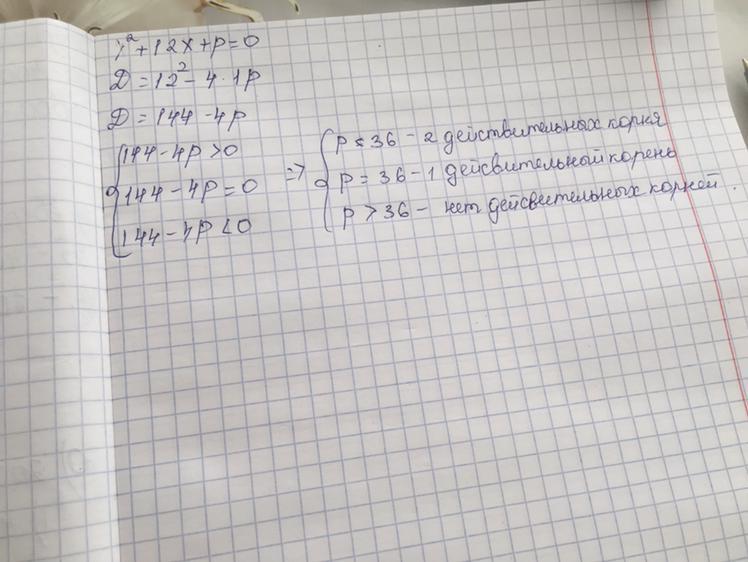 x²+12x+p=0
D=12²-4·1p
D=144-4p
144-4p>0
144-4p=0
144-4p<0
=>
p<36 - 2 действительных корня
p=36-1 дейсвительный корень
p>36 - нет дейсвительных корней.